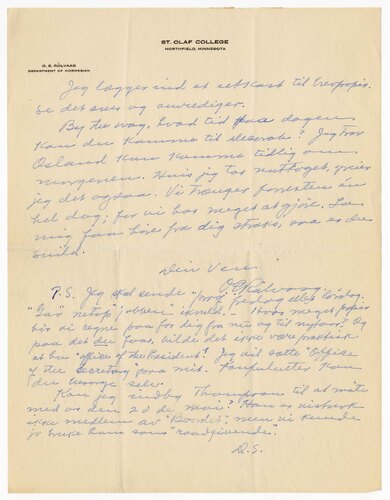 ST. OLAF COLLEGE
NORTHFIELD, MINNESOTA
O. E. RÖLVAAG
DEPARTMENT OF NORWEGIAN
Jeg lægger ind et utkast til brevpapir.
Se det over og omrediger.
By the way, hvad tid paa dagen
kan du komme til? Jeg tror
Osland kan komme tidlig om
morgenen. Hvis jeg tar nattoget, greier
jeg det ogsaa. Vi trænger forresten en
hel dag; for vi har meget at gjöre. La
mig faa höre fra dig straks, saa er du
snild.
Din Ven
OERölvaag
P.S. Jeg skal sende "prof." fredag eller lördag.
"Gaa netop", Hvor meget papir
bör vi regne paa for dig fra nu og til nytaar? Og
paa det du faar, vilde det ikke være praktisk
at ha "Office of the President"? Jeg vil sætte "Office
of the Secretary" paa mit. Konvolutter kan
du besörge selv.
Kan jeg indby Thompson til at möte
med os den 2 de mai? Han er
ikke medlem av "Boardet", men vi kunde
jo bruke ham som "raadgivende".
D.S.